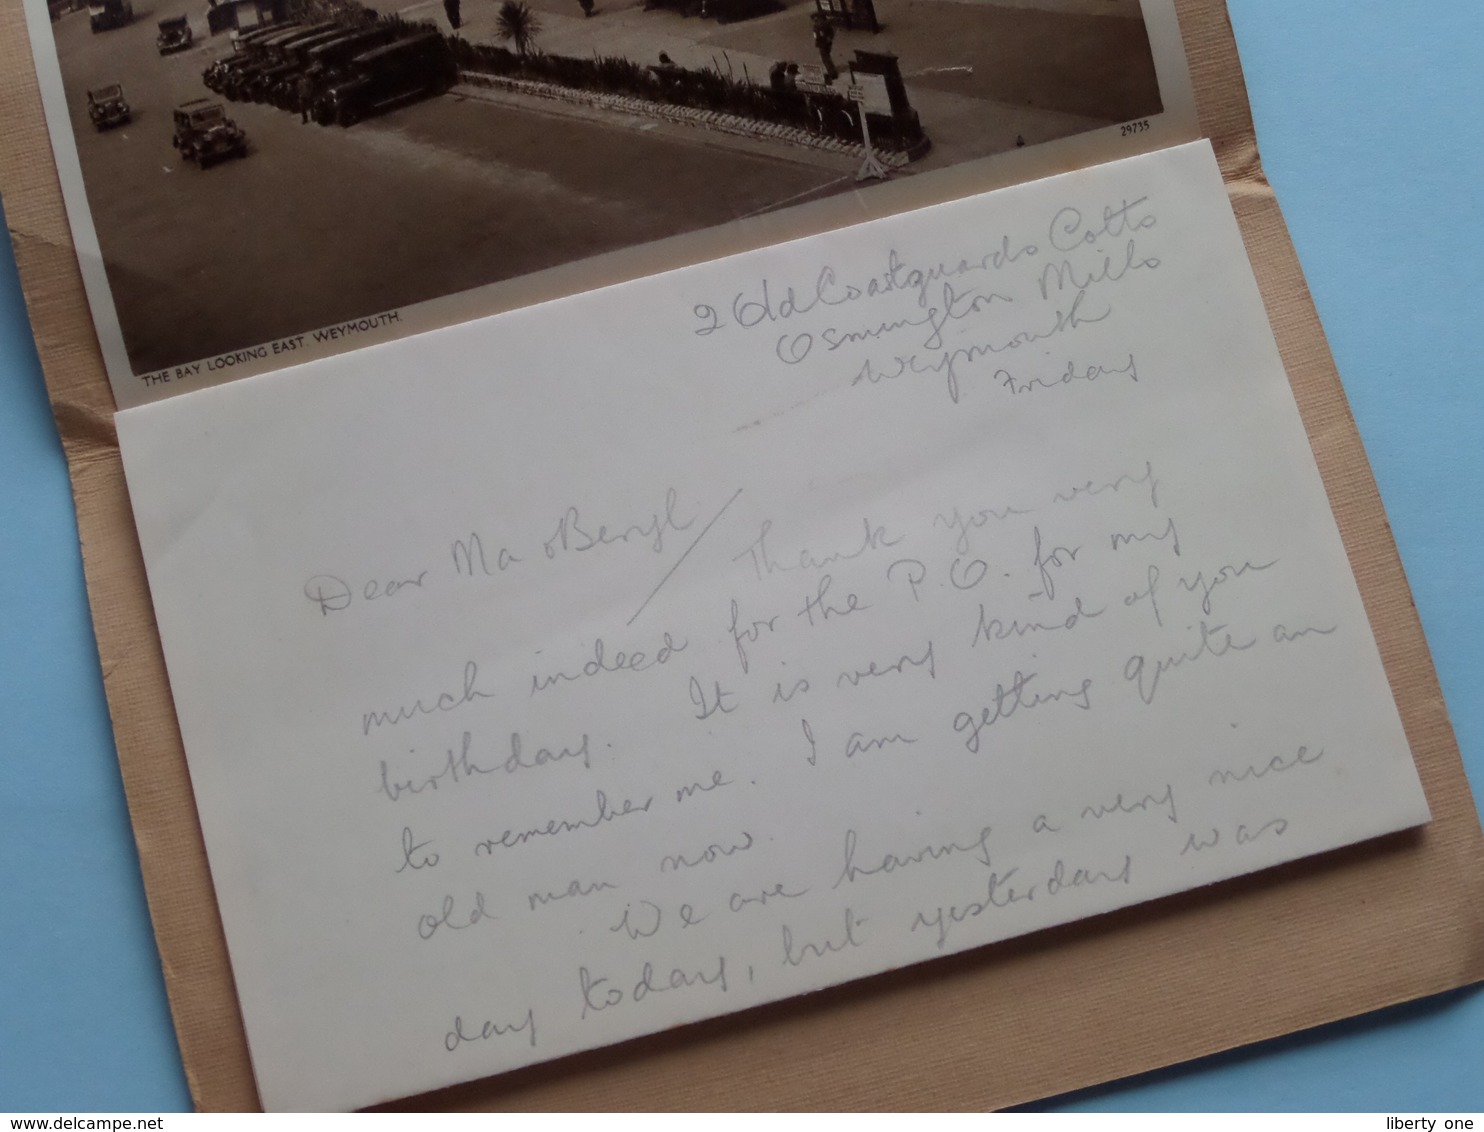 29735
THE BAY LOOKING EAST. WEYMOUTH.
2 Old Coastguards Cotts
Osmington Mills
Weymouth
Friday
Dear Ma & Beryl
Thank you very
much indeed for the P.O. for my
birthday. It is very kind of you
to remember me. I am getting quite an
old man now.
We are having a very nice
day today, but yesterday was
www.delcampe.net
liberty one